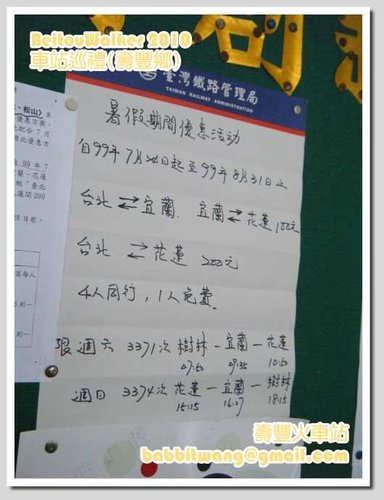 BeitouWalker 2010
車站巡禮(壽豐鄉)
臺灣鐵路管理局
TAIWAN RAILWAY ADMINISTRATION
暑假期間優惠活动
自99年7月24日起至99年8月31日止
台北 ⇄ 宜蘭. 宜蘭 ⇄ 花蓮 100元
台北 ⇄ 花蓮 200元
4人同行,1人免費.
限週六 3371次 樹林 — 宜蘭 — 花蓮
07:50 09:35 10:50
週日 3374次 花蓮 — 宜蘭 — 樹林
15:15 16:27 18:15
壽豐火車站
babbitwang@gmail.com